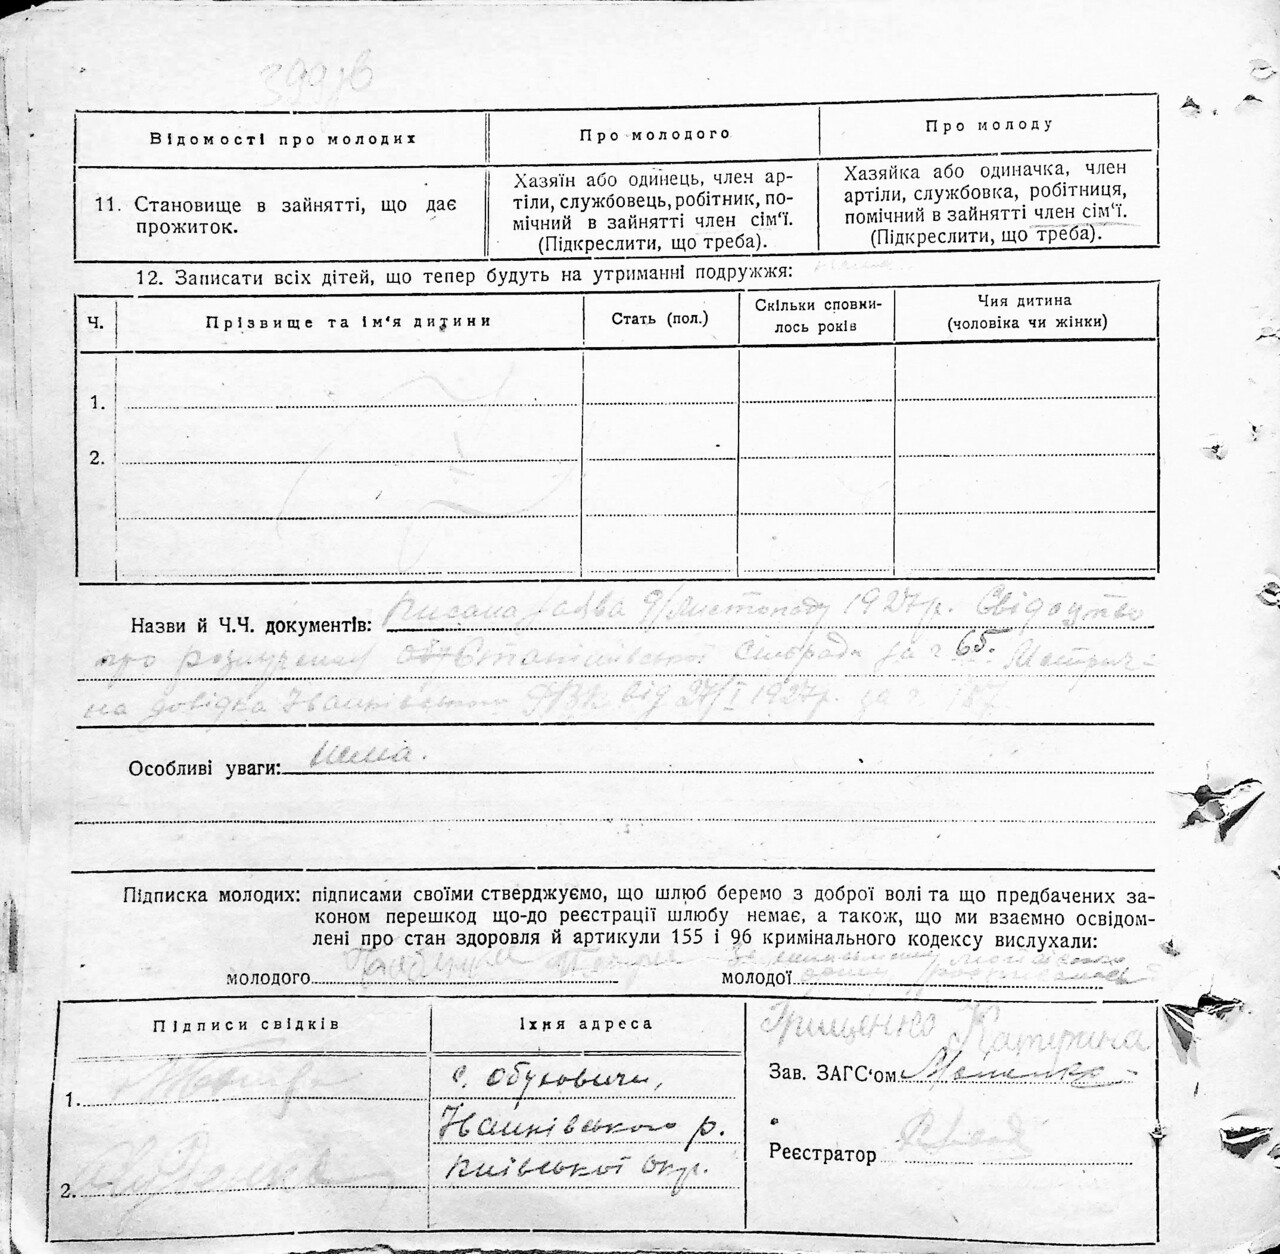 Відомості про молодих
Про молодого
Про молоду
11. Становище в зайнятті, що дає
прожиток.
Хазяїн або одинець, член ар-
тілі, службовець, робітник, по-
мічний в зайнятті член сім'ї.
(Підкреслити, що треба).
Хазяйка або одиначка, член
артілі, службовка, робітниця,
помічний в зайнятті член сім'ї.
(Підкреслити, що треба).
12. Записати всіх дітей, що тепер будуть на утриманні подружжя: нема
Ч.
Прізвище та ім'я дитини
Стать (пол.)
Скільки сповни-
лось років
Чия дитина
(чоловіка чи жінки)
1.
2.
Назви й Ч.Ч. документів: Писана заява 9/листопаду 1927 р. Свідоцтво
про розлучення Сільради за ч 65. Метрич-
на довідка Іванківського РВК від 27/I 1927 р. за ч. 187
Особливі уваги: нема.
Підписка молодих: підписами своїми стверджуємо, що шлюб беремо з доброї волі та що предбачених за-
коном перешкод що-до реєстрації шлюбу немає, а також, що ми взаємно освідом-
лені про стан здоровля й артикули 155 і 96 кримінального кодексу вислухали:
молодого
молодої
Підписи свідків
Їхня адреса
Грищенко Катерина
1.
с. Обуховичи,
Зав. ЗАГС'ом
Іванківського р.
Реєстратор
2.
Київської окр.